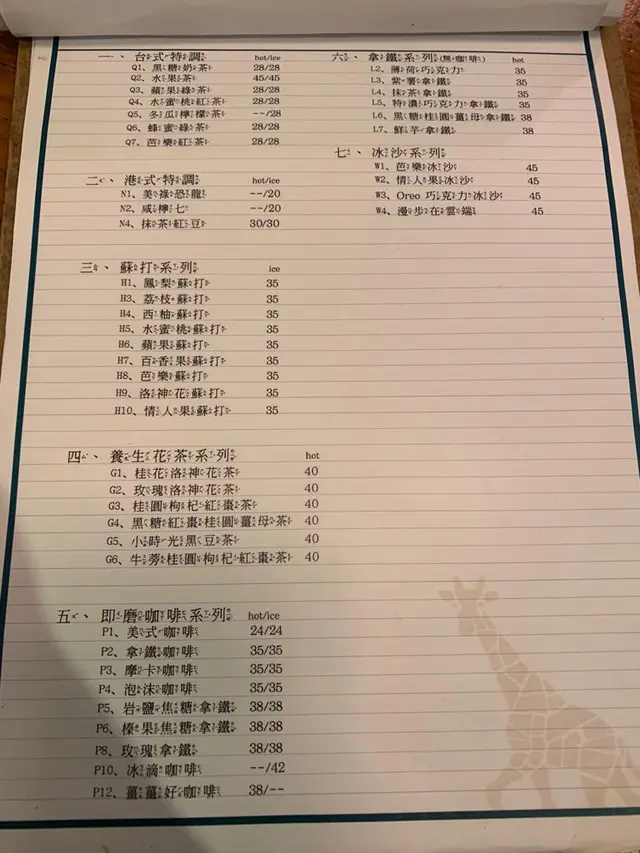 一、台式特調 hot/ice
Q1、黑糖奶茶 28/28
Q2、水果茶 45/45
Q3、蘋果綠茶 28/28
Q4、水蜜桃紅茶 28/28
Q5、冬瓜檸檬茶 --/28
Q6、蜂蜜綠茶 28/28
Q7、芭樂紅茶 28/28
二、港式特調 hot/ice
N1、美祿恐龍 --/20
N2、咸檸七 --/20
N4、抹茶紅豆 30/30
三、蘇打系列 ice
H1、鳳梨蘇打 35
H3、荔枝蘇打 35
H4、西柚蘇打 35
H5、水蜜桃蘇打 35
H6、蘋果蘇打 35
H7、百香果蘇打 35
H8、芭樂蘇打 35
H9、洛神花蘇打 35
H10、情人果蘇打 35
四、養生花茶系列 hot
G1、桂花洛神花茶 40
G2、玫瑰洛神花茶 40
G3、桂圓枸杞紅棗茶 40
G4、黑糖紅棗桂圓薑母茶 40
G5、小時光黑豆茶 40
G6、牛蒡桂圓枸杞紅棗茶 40
五、即磨咖啡系列 hot/ice
P1、美式咖啡 24/24
P2、拿鐵咖啡 35/35
P3、摩卡咖啡 35/35
P4、泡沫咖啡 35/35
P5、岩鹽焦糖拿鐵 38/38
P6、榛果焦糖拿鐵 38/38
P8、玫瑰拿鐵 38/38
P10、冰滴咖啡 --/42
P12、薑薑好咖啡 38/--
六、拿鐵系列(無咖啡) hot
L2、薄荷巧克力 35
L3、紫薯拿鐵 35
L4、抹茶拿鐵 35
L5、特濃巧克力拿鐵 35
L6、黑糖桂圓薑母拿鐵 38
L7、鮮芋拿鐵 38
七、冰沙系列
W1、芭樂冰沙 45
W2、情人果冰沙 45
W3、Oreo 巧克力冰沙 45
W4、漫步在雲端 45